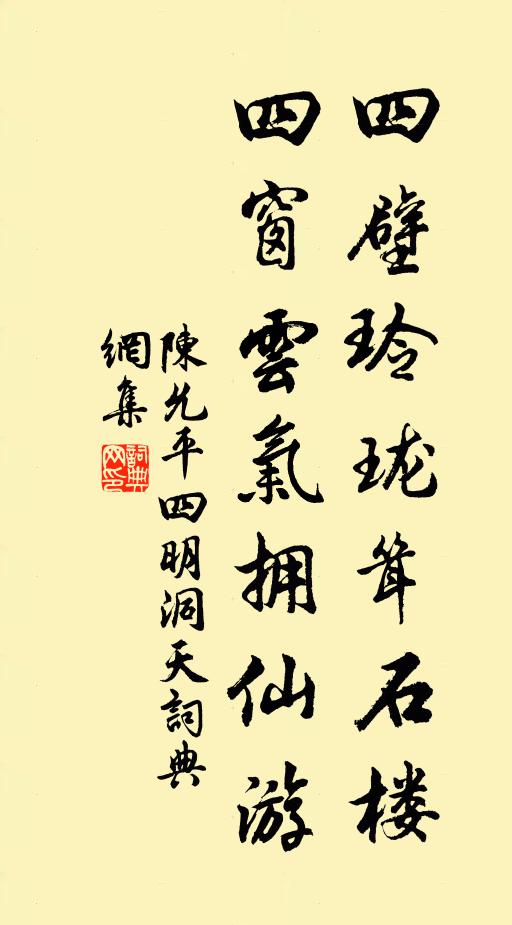 四壁玲珑耸石楼
四窗雲氣拥仙游
陳允平四明洞天詞典
網集
詞典网印